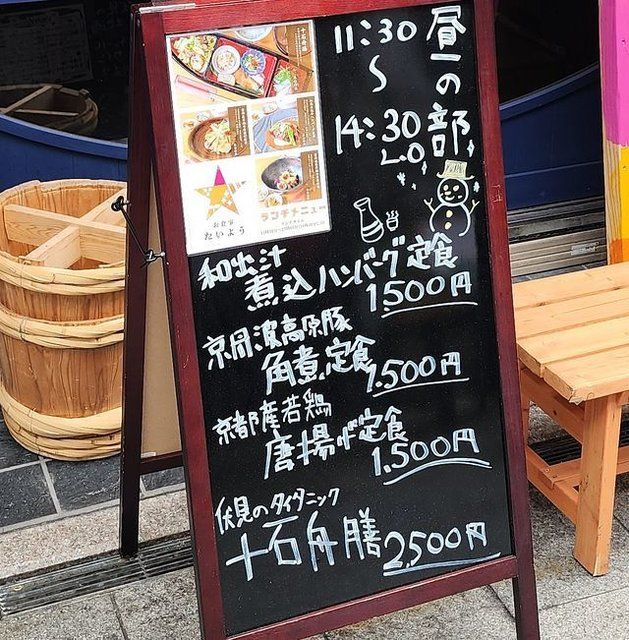 昼の部
11:30
〜
14:30
L.O
和出汁
煮込ハンバーグ定食
1,500円
京丹波高原豚
角煮定食
1,500円
京都産若鶏
唐揚げ定食
1,500円
伏見のタイタニック
十石舟膳
2,500円
お食事
たいよう
ランチメニュー